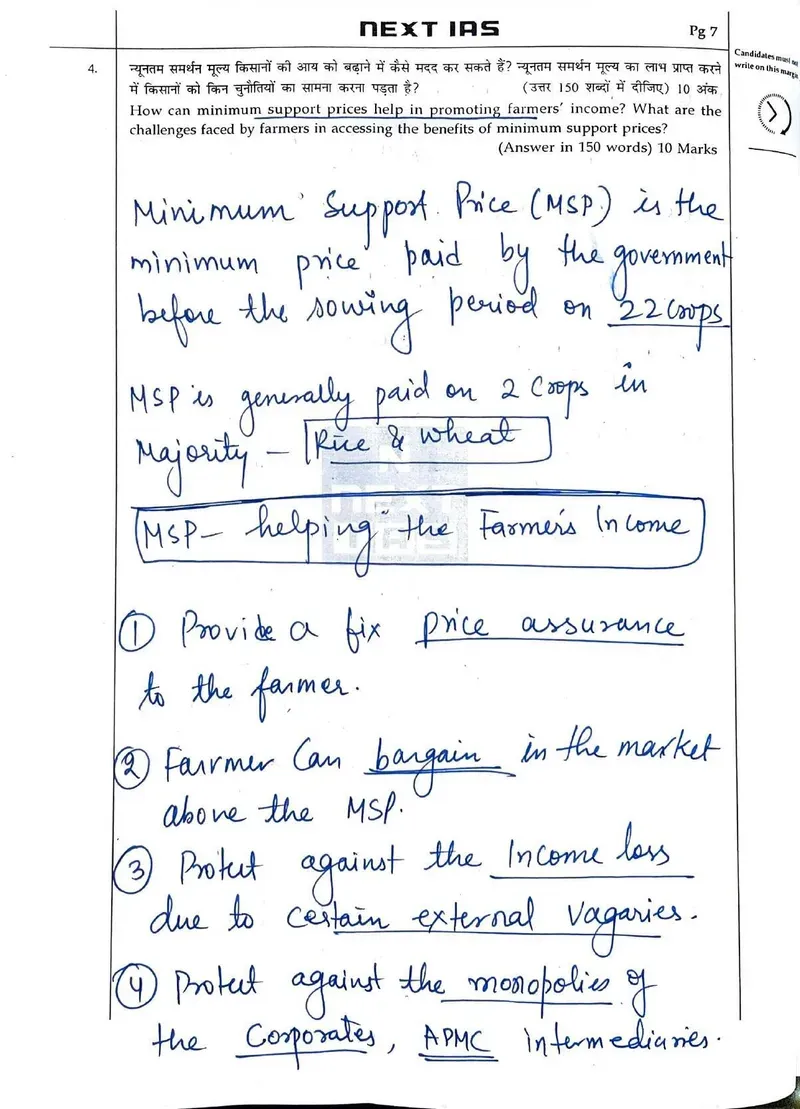 NEXT IAS
Pg 7
Candidates must not
write on this margin
4. न्यूनतम समर्थन मूल्य किसानों की आय को बढ़ाने में कैसे मदद कर सकते हैं? न्यूनतम समर्थन मूल्य का लाभ प्राप्त करने
में किसानों को किन चुनौतियों का सामना करना पड़ता है? (उत्तर 150 शब्दों में दीजिए) 10 अंक
How can minimum support prices help in promoting farmers' income? What are the
challenges faced by farmers in accessing the benefits of minimum support prices?
(Answer in 150 words) 10 Marks
Minimum Support Price (MSP) is the
minimum price paid by the government
before the sowing period on 22 Crops
MSP is generally paid on 2 Crops in
Majority - Rice & Wheat
NEXT IAS
MSP - helping the Farmer's Income
1 Provide a fix price assurance
to the farmer.
2 Fairmer Can bargain in the market
above the MSP.
3 Protect against the Income loss
due to certain external vagaries.
4 Protect against the monopolies of
the Corporates, APMC intermediaries.